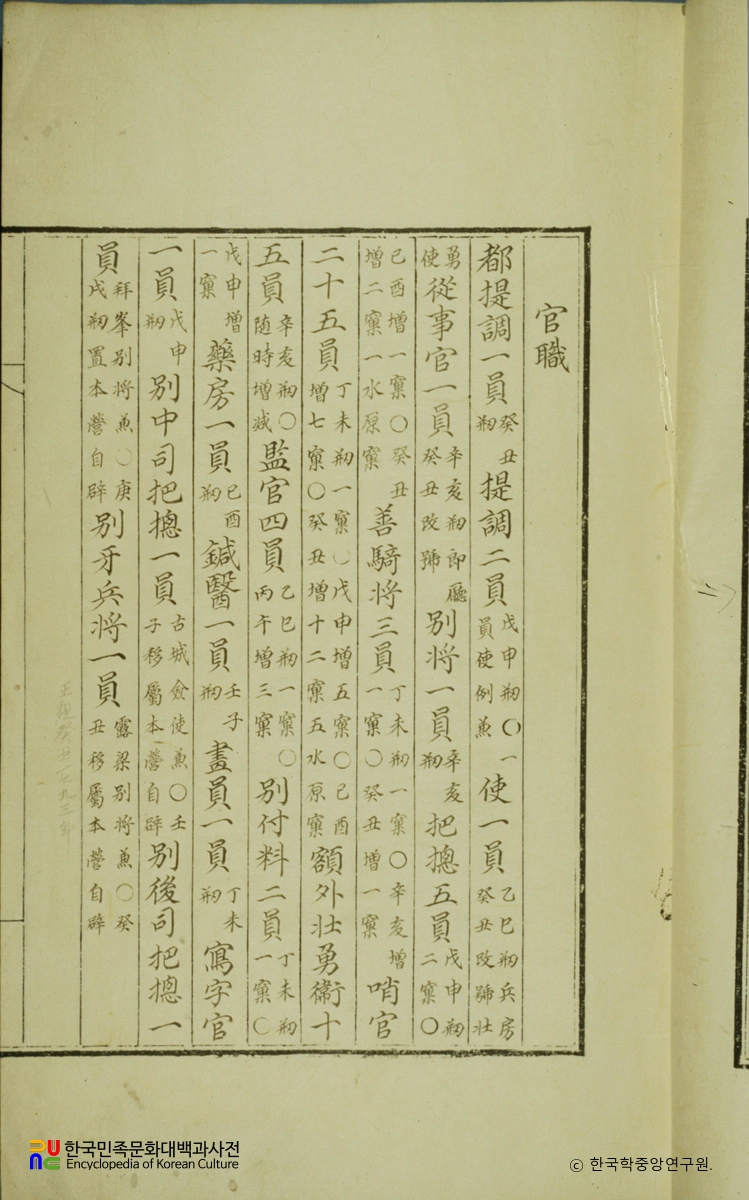 官職
都提調一員癸丑剏提調二員戊申剏〇一員使例兼使一員乙巳剏兵房癸丑改號壯
勇使從事官一員辛亥剏郎廳癸丑改號別將一員辛亥剏把摠五員戊申剏二窠〇
己酉增一窠〇癸丑增二窠一水原窠善騎將三員丁未剏一窠〇辛亥增一窠〇癸丑增一窠哨官
二十五員丁未剏一窠〇戊申增五窠〇己酉增七窠〇癸丑增十二窠五水原窠額外壯勇衛十
五員辛亥剏〇随時增減監官四員乙巳剏一窠〇丙午增三窠別付料二員丁未剏一窠〇
戊申增一窠藥房一員己酉剏鍼醫一員壬子剏畵員一員丁未剏寫字官
一員戊申剏別中司把摠一員古城僉使兼〇壬子移屬本營自辟別後司把摠一
員拜峯別將兼〇庚戌剏置本營自辟別牙兵將一員露梁別將兼〇癸丑移屬本營自辟
한국민족문화대백과사전
Encyclopedia of Korean Culture
ⓒ 한국학중앙연구원.